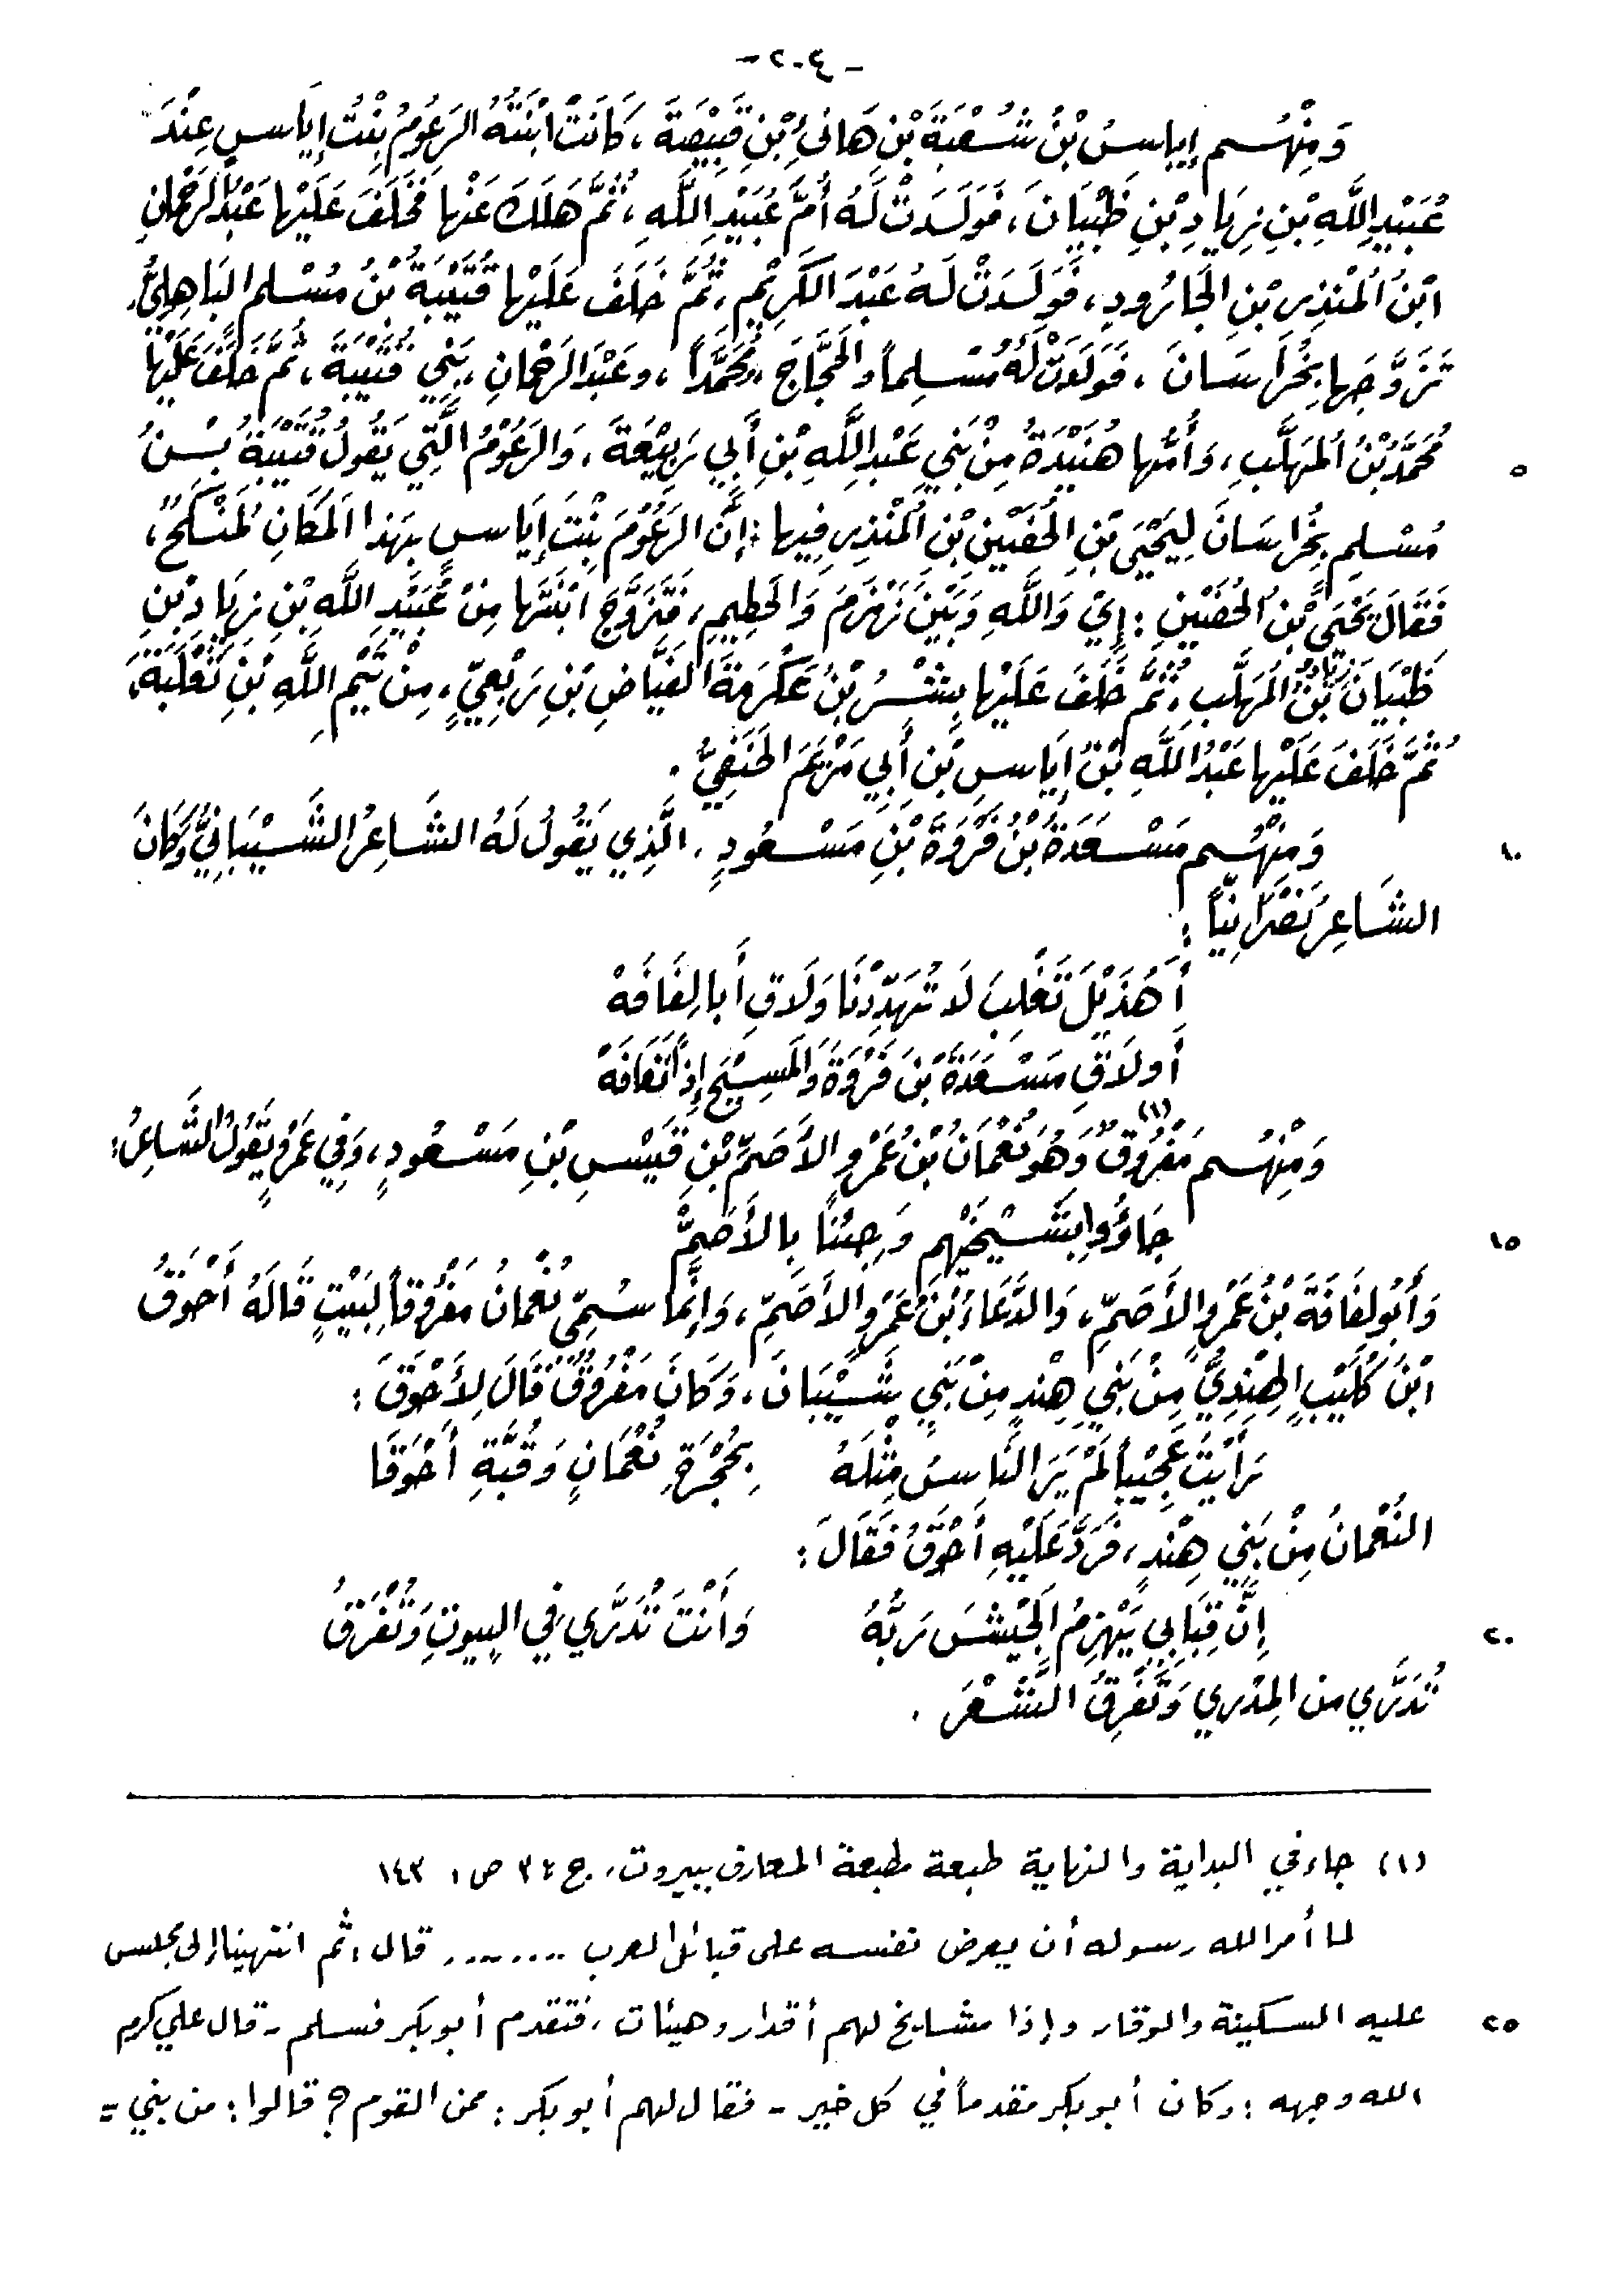 - ٤٠٢ -
وَمِنْهُم إِيَاسُ بْنُ شُعْبَةَ بْنِ هَانِئِ بْنِ قَبِيْصَةَ ، كَانَتْ ابْنَتُهُ الرَعُومُ بِنْتُ إِيَاسٍ عِنْدَ
عُبَيْدِ اللَّهِ بْنِ زِيَادِ بْنِ ظَبْيَانَ ، فَوَلَدَتْ لَهُ أُمَّ عُبَيْدِ اللَّهِ ، ثُمَّ هَلَكَ عَنْها فَخَلَفَ عَلَيْها عَبْدُ الرَحْمَانِ
ابْنُ المُنْذِرِ بْنِ الجَارُودِ ، فَوَلَدَتْ لَهُ عَبْدَ الكَرِيْمِ ، ثُمَّ خَلَفَ عَلَيْها قُتَيْبَةُ بْنُ مُسْلمِ البَاهِلِيُّ
تَزَوَّجَها بِخُرَاسَانَ ، فَوَلَدَتْ لَهُ مُسْلِماً والحَجَّاجَ ومُحَمَّداً ، وعَبْدَ الرَحْمانِ ، بَنِي قُتَيْبَةَ ، ثُمَّ خَلَفَ عَلَيْها
مُحَمَّدُ بْنُ المُهَلَّبِ ، وَأُمُّها هُنَيْدَةُ مِنْ بَنِي عَبْدِ اللَّهِ بْنِ أَبِي رَبِيْعَةَ ، وَالرَعُوْمُ الَّتِي يَقُولُ قُتَيْبَةُ بْنُ ٥
مُسْلِمِ بِخُرَاسَانَ لِيَحْيَى بْنِ الحُضَيْنِ بْنِ المُنْذِرِ فِيها : إِنَّ الرَعُوْمَ بِنْتَ إِيَاسٍ بِهَذا المَكَانِ لمَنْكَحٌ ،
فَقَالَ يَحْيَى بْنُ الحُضَيْنِ : إِيْ وَاللَّهِ وَبَيْنَ زَمْزَمَ وَالحَطِيمِ ، فَتَزَوَّجَ ابْنَتَها مِنْ عُبَيْدِ اللَّهِ بْنِ زِيَادِ بْنِ
ظَبْيَانَ زِيَادُ بْنُ المُهَلَّبِ ، ثُمَّ خَلَفَ عَلَيْها بِشْرُ بْنُ عِكْرِمَةَ الفَيَّاضِ بْنِ رِبْعِيٍّ ، مِنْ تَيْمِ اللَّهِ بْنِ ثَعْلَبَةَ ،
ثُمَّ خَلَفَ عَلَيْها عَبْدُ اللَّهِ بْنُ إِيَاسِ بْنِ أَبِي مَرْيَمَ الحَنَفِيُّ .
وَمِنْهُم مَسْعَدَةُ بْنُ فَرْوَةَ بْنِ مَسْعُودٍ ، الَّذِي يَقُولُ لَهُ الشَاعِرُ الشَّيْبَانِيُّ وَكَانَ ١٠
الشَاعِرُ نَصْرَانِيّاً :
أَهُذَيْلَ تَغْلِبَ لَا تُهَدِّدْنَا وَلَاقِ أَبا لِفَافَهْ
أَو لَاقِ مَسْعَدَةَ بْنَ فَرْوَةَ وَالمَسِيْحِ إِذاً تَعَافَهْ
وَمِنْهُم مَفْرُوقٌ (١) وَهُوَ نُعْمَانُ بْنُ عَمْرٍو الأَصَمِّ بْنِ قَيْسِ بْنِ مَسْعُودٍ ، وَفِي عَمْرٍو يَقُولُ الشَاعِرُ :
جَاؤُوا بِشَيْخَيْهِم وَجِئْنَا بِالأَصَمّْ ١٥
وَأَبُو لِفَافَةَ بْنُ عَمْرٍو الأَصَمِّ ، وَالدَّعَّاءُ بْنُ عَمْرٍو الأَصَمِّ ، وَإِنَّما سُمِّيَ نُعْمَانُ مَفْرُوقاً لِبَيْتٍ قَالَهُ أَحْوَقُ
ابْنُ كُلَيْبٍ الهِنْدِيُّ مِنْ بَنِي هِنْدٍ مِنْ بَنِي شَيْبَانَ ، وَكَانَ مَفْرُوقٌ قَالَ لِأَحْوَقَ :
رَأَيْتُ عَجِيْباً لَمْ يَرَ النَاسُ مِثْلَهُ بِحُجْرَةِ نُعْمَانٍ وَقُبَّةِ أَحْوَقَا
النُعْمَانُ مِنْ بَنِي هِنْدٍ ، فَرَدَّ عَلَيْهِ أَحْوَقُ فَقَالَ :
إِنَّ قِبَابِي يَهْزِمُ الجَيْشَ رَبُّهُ وَأَنْتَ تُدَرَّي فِي البيوتِ وَتُفْرَقُ ٢٠
تُدَرَّي من المِدْرِي وَتُفَرِقُ الشَّعْرَ .
(١) جاء في البداية والنهاية طبعة مطبعة المعارف ببيروت ، ج : ٣ ص : ١٤٣
لما أمر الله رسوله أن يعرض نفسه على قبائل العرب ........ قال : ثم انتهينا إلى مجلس
عليه السكينة والوقار وإذا مشايخ لهم أقدار وهيئات ، فتقدم أبو بكر فسلم - قال علي كرم ٢٥
الله وجهه : وكان أبو بكر مقدماً في كل خير - فقال لهم أبو بكر : ممن القوم ؟ قالوا : من بني =